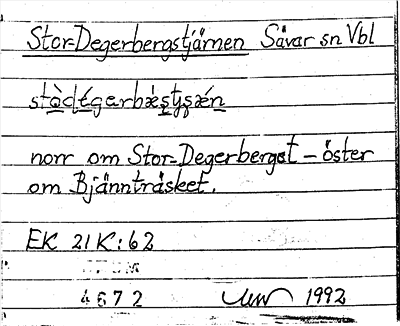 Stor-Degerbergstjärnen Sävar sn Vbl
norr om Stor-Degerberget – öster
om Bjännträsket.
EK 21K:62
4672 1992